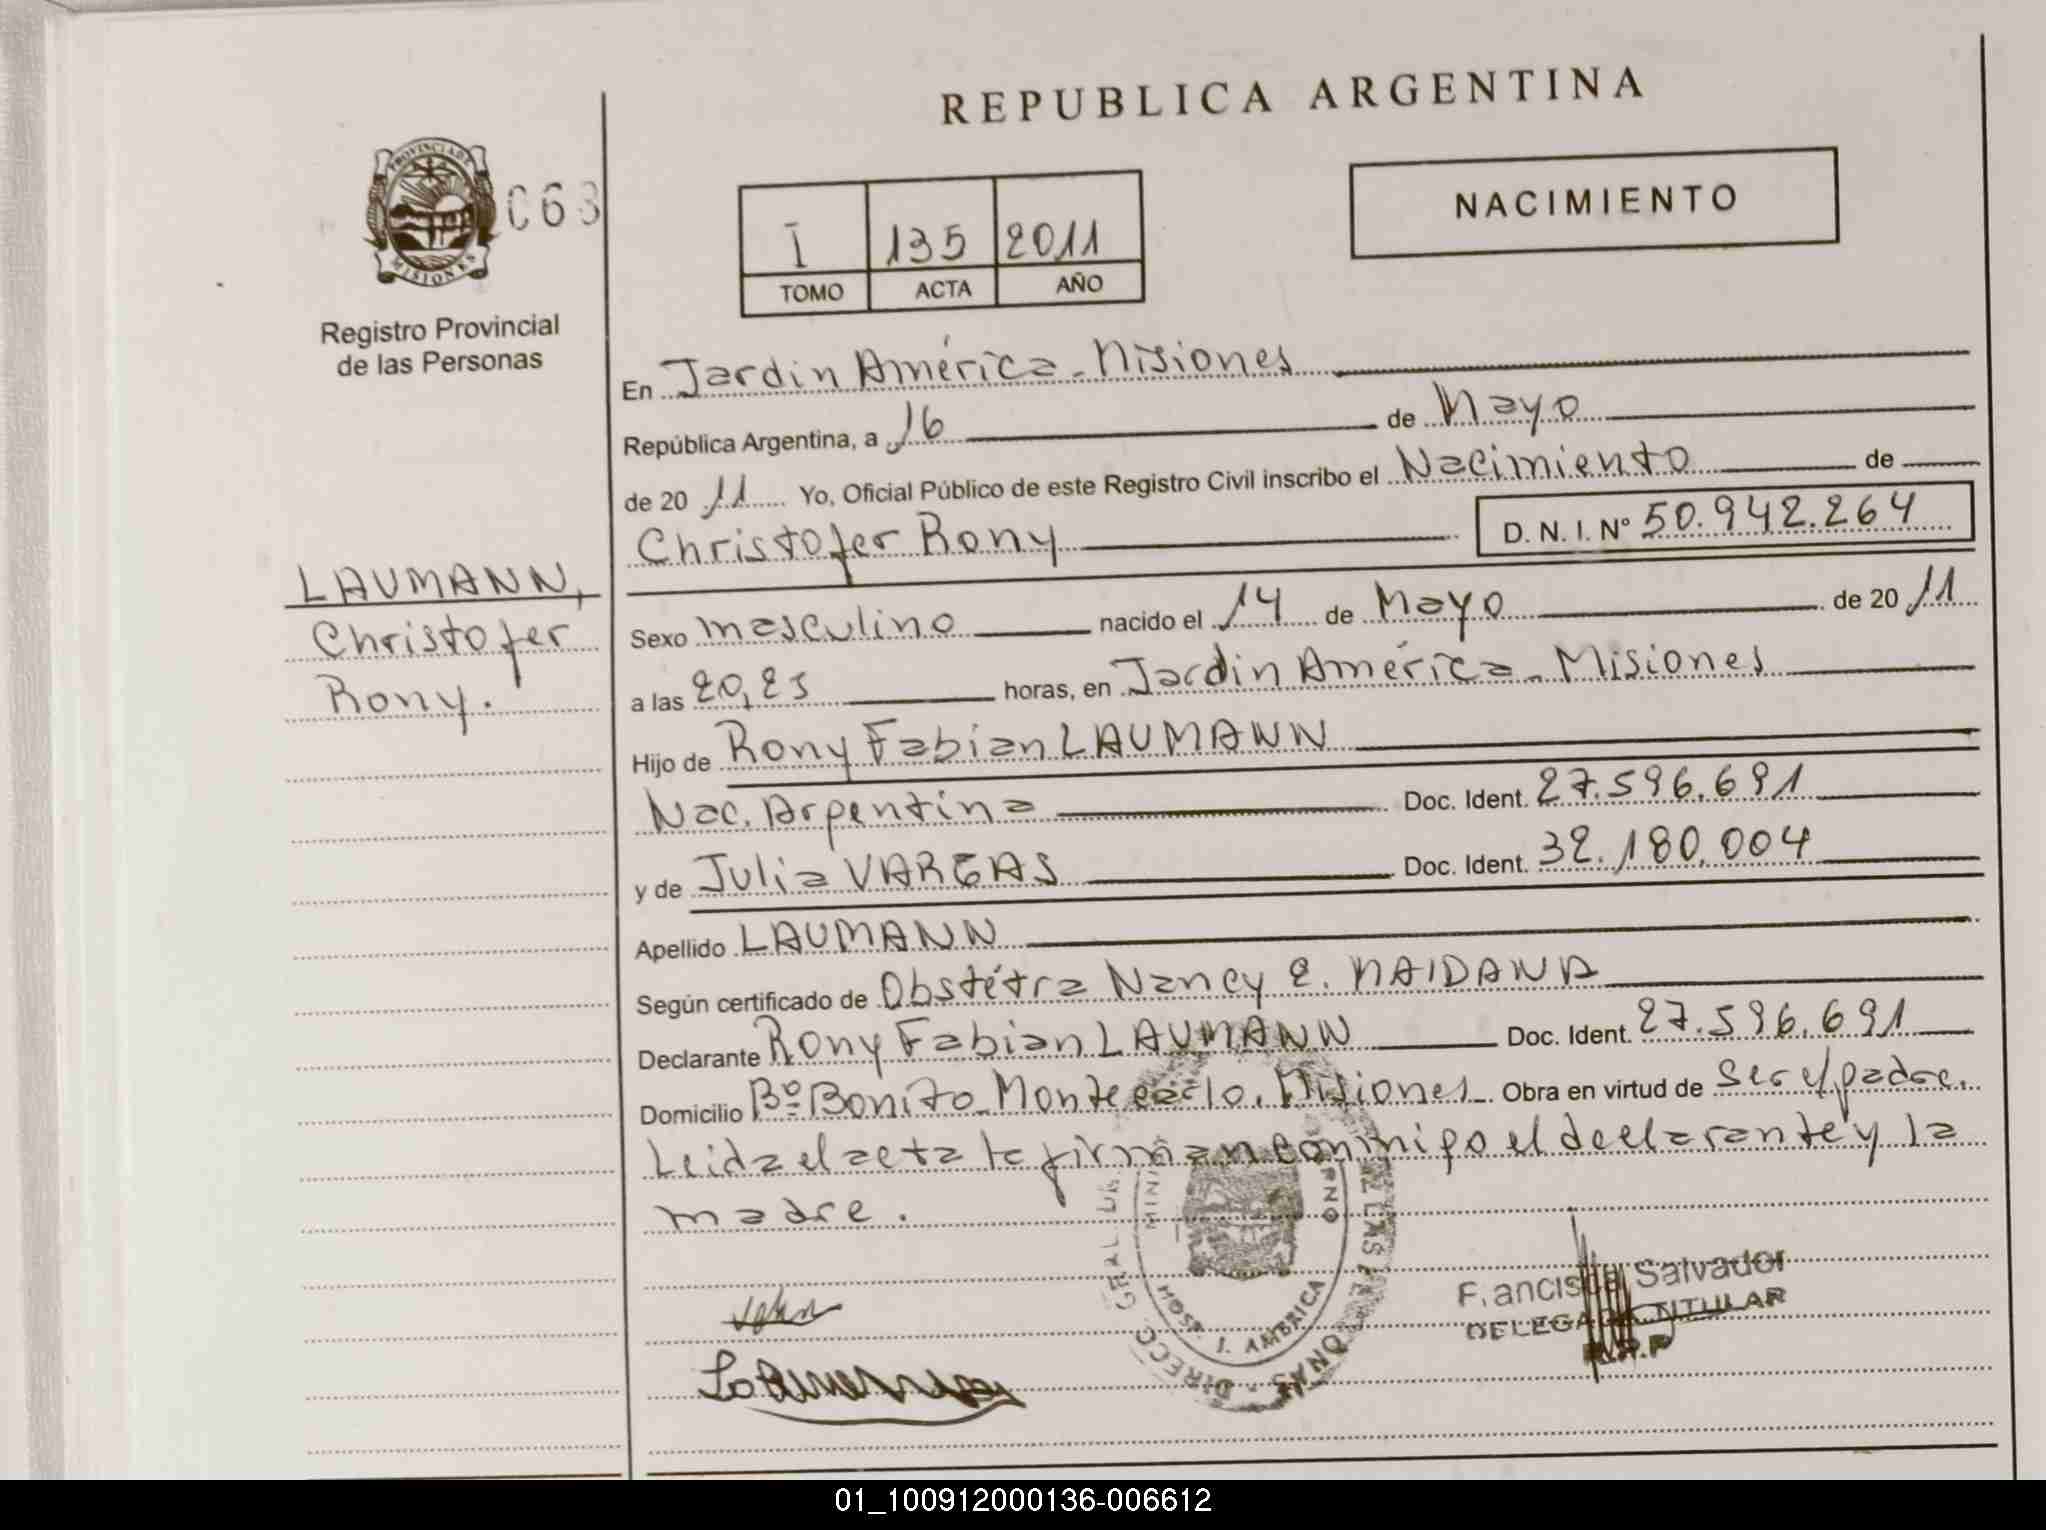 REPUBLICA ARGENTINA
PROVINCIA DE
MISIONES
063
Registro Provincial
de las Personas
NACIMIENTO
I 135 2011
TOMO ACTA AÑO
En Jardin América - Misiones
República Argentina, a 16 de Mayo
de 20 11 Yo, Oficial Público de este Registro Civil inscribo el Nacimiento de
Christofer Rony D. N. I. Nº 50.942.264
LAUMANN,
Christofer
Rony.
Sexo masculino nacido el 14 de Mayo de 20 11
a las 20,25 horas, en Jardin América - Misiones
Hijo de Rony Fabian LAUMANN
Nac. Argentina Doc. Ident. 27.596.691
y de Julia VARGAS Doc. Ident. 32.180.004
Apellido LAUMANN
Según certificado de Obstétra Nancy E. MAIDANA
Declarante Rony Fabian LAUMANN Doc. Ident. 27.596.691
Domicilio Bº Bonito - Montecarlo. Misiones - Obra en virtud de ser el padre.
Leida el acta la firman conmigo el declarante y la
madre.
HOSP. J. AMERICA
Salvador
DELEGADO TITULAR
R.P.P
01_100912000136-006612